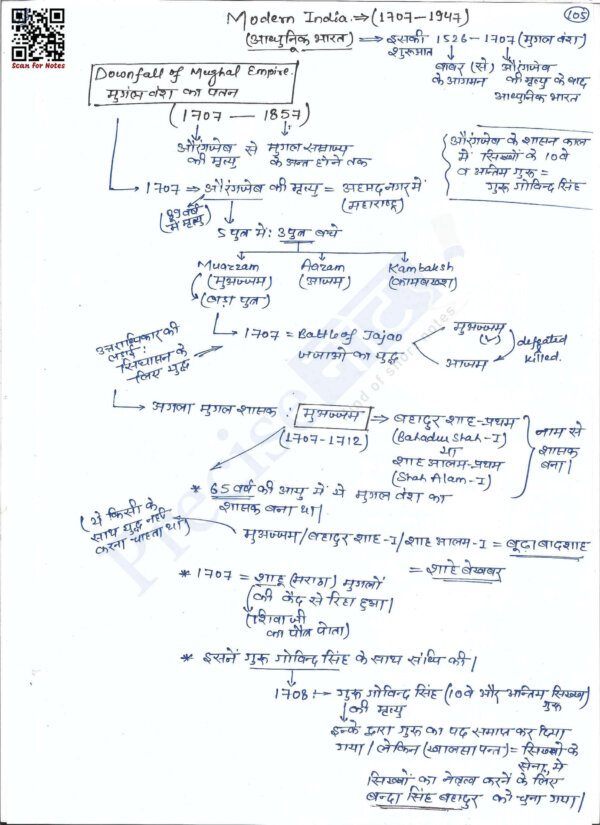 Modern India ⇒ (1707-1947)
105
(आधुनिक भारत) ⇒ इसकी शुरुआत 1526-1707 (मुगल वंश)
बाबर (से) औरंगजेब
के आगमन की मृत्यु के बाद
आधुनिक भारत
Scan for Notes
Downfall of Mughal Empire.
मुगल वंश का पतन
(1707 - 1857)
औरंगजेब से मुगल समाज्य
की मृत्यु के अन्त होने तक
औरंगजेब के शासन काल
में सिक्खों के 10वे
व अन्तिम गुरु =
गुरु गोविन्द सिंह
→ 1707 ⇒ औरंगजेब की मृत्यु = अहमदनगर में
(महाराष्ट्र)
(89 वर्ष
में मृत्यु)
5 पुत्र में: 3 पुत्र बचे
Muazzam Aazam Kambaksh
(मुअज्जम) (आजम) (कामबख्श)
(बड़ा पुत्र)
उत्तराधिकार की
लड़ाई:
सिंघासन के
लिए युद्ध
→ 1707 = Battle of Jajao
जजाओ का युद्ध
मुअज्जम
(V)
आजम
defeated
killed.
→ अगला मुगल शासक : मुअज्जम ⇒ बहादुर शाह-प्रथम
(1707-1712)
(Bahadur Shah-I)
या
शाह आलम-प्रथम
(Shah Alam-I)
नाम से
शासक
बना।
* 65 वर्ष की आयु में ये मुगल वंश का
शासक बना था।
(ये किसी के
साथ युद्ध नहीं
करना चाहता था)
मुअज्जम/बहादुर शाह-I/शाह आलम-I = बूढ़ा बादशाह
= शाहे बेखबर
* 1707 = शाहू (मराठा) मुगलों
की कैद से रिहा हुआ।
(शिवाजी
का पौत्र पोता)
* इसनें गुरु गोविन्द सिंह के साथ संधि की।
1708 :- गुरु गोविन्द सिंह (10वे और अन्तिम सिक्ख गुरु
की मृत्यु
इनके द्वारा गुरु का पद समाप्त कर दिया
गया/लेकिन (खालसा पन्त) = सिक्खों के
सेना, मे
सिक्खों का नेतृत्व करनें के लिए
बन्दा सिंह बहादुर को चुना गया।